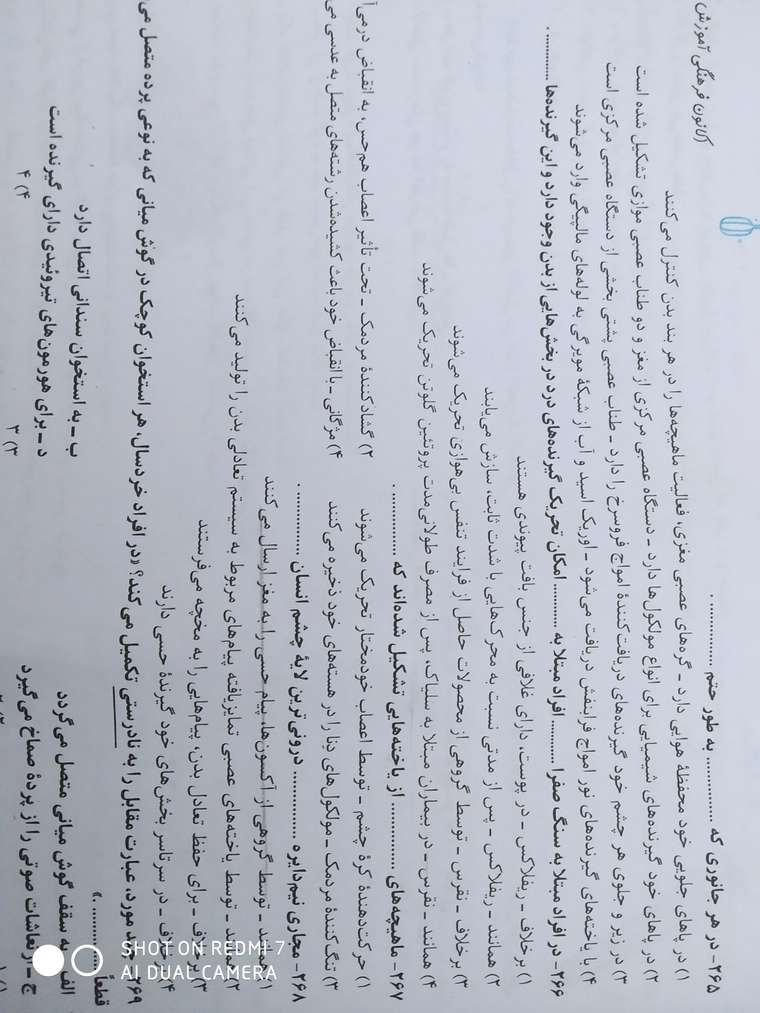 کانون فرهنگی آموزش
۲۶۵- در هر جانوری که .............. به طور حتم ..............
۱) در پاهای جلویی خود محفظهٔ هوایی دارد - گره‌های عصبی مغزی، فعالیت ماهیچه‌ها را در هر بند بدن کنترل می‌کنند
۲) در پاهای خود گیرنده‌های شیمیایی برای انواع مولکول‌ها دارد - دستگاه عصبی مرکزی از مغز و دو طناب عصبی موازی تشکیل شده است
۳) در زیر و جلوی هر چشم خود گیرنده‌های دریافت‌کنندهٔ امواج فروسرخ را دارد - طناب عصبی پشتی بخشی از دستگاه عصبی مرکزی است
۴) با یاخته‌های گیرنده‌های نور امواج فرابنفش دریافت می‌شود - اوریک اسید و آب از شبکهٔ مویرگی به لوله‌های مالپیگی وارد می‌شوند
۲۶۶- در افراد مبتلا به سنگ صفرا .......... افراد مبتلا به .......... امکان تحریک گیرنده‌های درد در بخش‌هایی از بدن وجود دارد و این گیرنده‌ها ..........
۱) برخلاف - ریفلاکس - در پوست، دارای غلافی از جنس بافت پیوندی هستند
۲) همانند - ریفلاکس - پس از مدتی نسبت به محرک‌هایی با شدت ثابت، سازش می‌یابند
۳) برخلاف - نقرس - توسط گروهی از محصولات حاصل از فرایند تنفس بی‌هوازی تحریک می‌شوند
۴) همانند - نقرس - در بیماران مبتلا به سلیاک، پس از مصرف طولانی‌مدت پروتئین گلوتن تحریک می‌شوند
۲۶۷- ماهیچه‌های .............. از یاخته‌هایی تشکیل شده‌اند که ..............
۱) حرکت‌دهندهٔ کرهٔ چشم - توسط اعصاب خودمختار تحریک می‌شوند
۲) گشادکنندهٔ مردمک - تحت تأثیر اعصاب هم‌حس، به انقباض درمی‌آ
۳) تنگ‌کنندهٔ مردمک - مولکول‌های دنا را در هسته‌های خود ذخیره می‌کنند
۴) مژگانی - با انقباض خود باعث کشیده‌شدن رشته‌های متصل به عدسی می
۲۶۸- مجاری نیم‌دایره .............. درونی‌ترین لایهٔ چشم انسان ..............
توسط گروهی از آکسون‌ها، پیام حسی را به مغز ارسال می‌کنند
توسط یاخته‌های عصبی تمایزیافته پیام‌های مربوط به سیستم تعادلی بدن را تولید می‌کنند
۳) - برای حفظ تعادل بدن، پیام‌هایی را به مخچه می‌فرستند
۴) - در سرتاسر بخش‌های خود گیرندهٔ حسی دارند
۲۶۹- مورد، عبارت مقابل را به نادرستی تکمیل می‌کند؟ «در افراد خردسال، هر استخوان کوچک در گوش میانی که به نوعی پرده متصل می
قطعاً ..............»
الف - به سقف گوش میانی متصل می‌گردد
ب - به استخوان سندانی اتصال دارد
ج - ارتعاشات صوتی را از پردهٔ صماخ می‌گیرد
د - برای هورمون‌های تیروئیدی دارای گیرنده است
۳) ۳
۴) ۴
SHOT ON REDMI 7
AI DUAL CAMERA